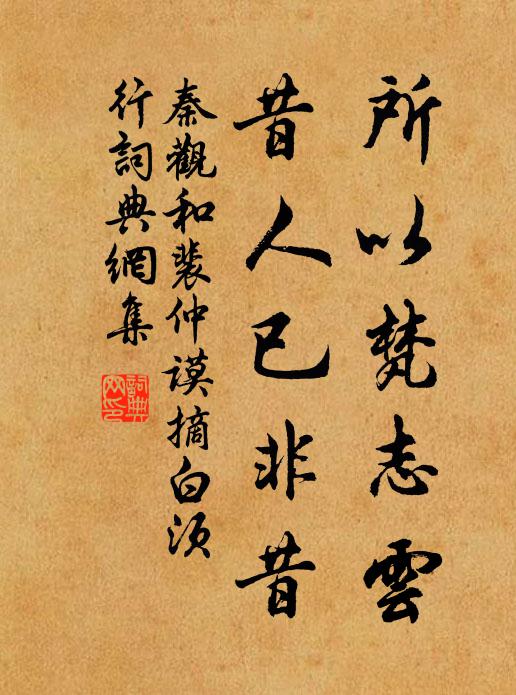 所以梵志雲
昔人已非昔
秦觀和裴仲謨摘白須
行詞典網集
詞典網印